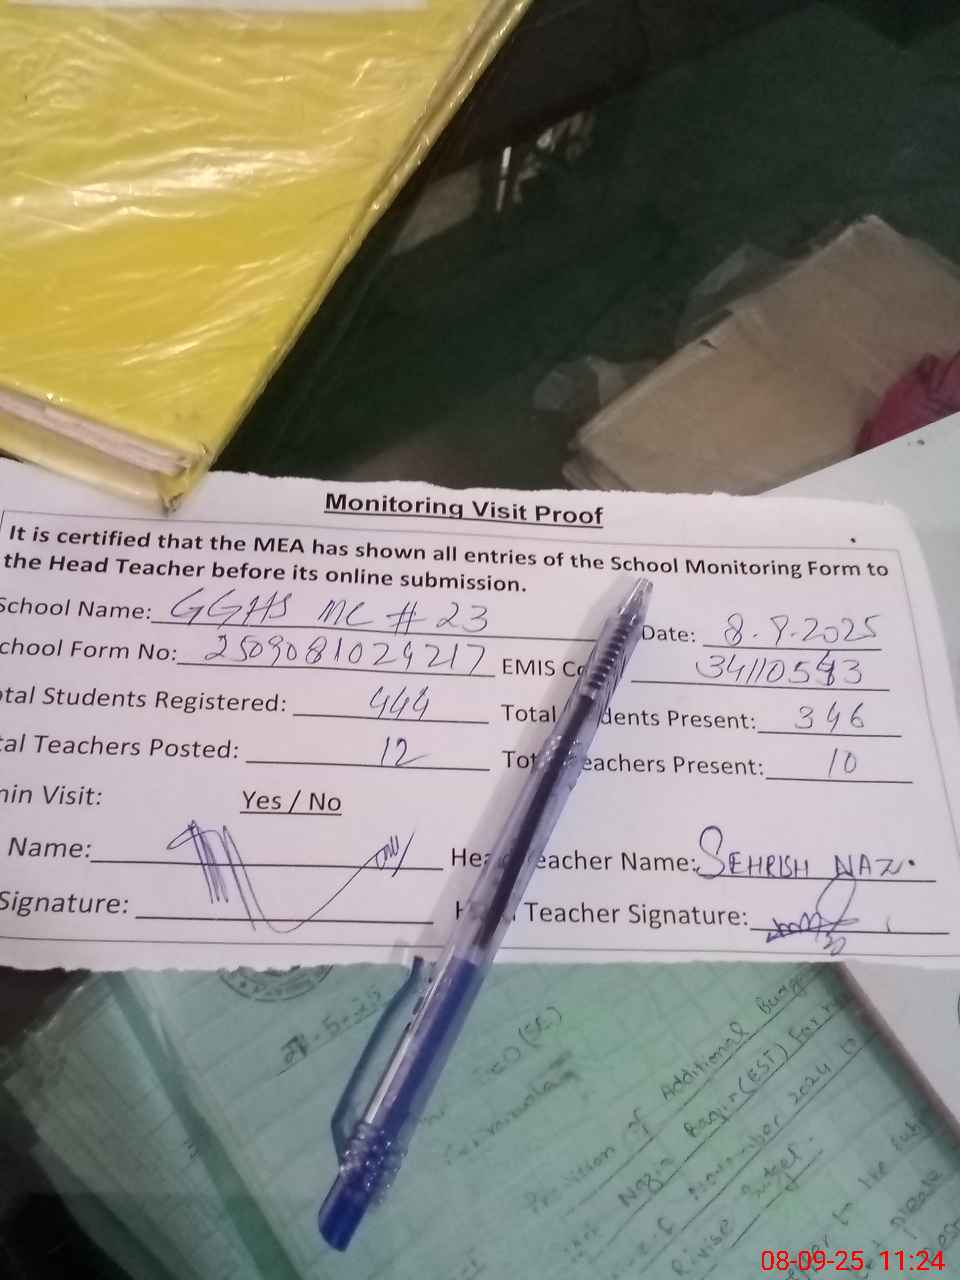 Monitoring Visit Proof
It is certified that the MEA has shown all entries of the School Monitoring Form to
the Head Teacher before its online submission.
School Name: GGHS MC # 23 Date: 8.9.2025
chool Form No: 2509081024217 EMIS Co 34110543
tal Students Registered: 444 Total dents Present: 346
tal Teachers Posted: 12 Tot eachers Present: 10
min Visit: Yes / No
Name: Hea eacher Name: SEHRISH NAZ.
Signature: H Teacher Signature:
5-25
Provision of Additional Budg
(EST) For
November 2024 to
Revise Budget.
the sub
please
08-09-25 11:24